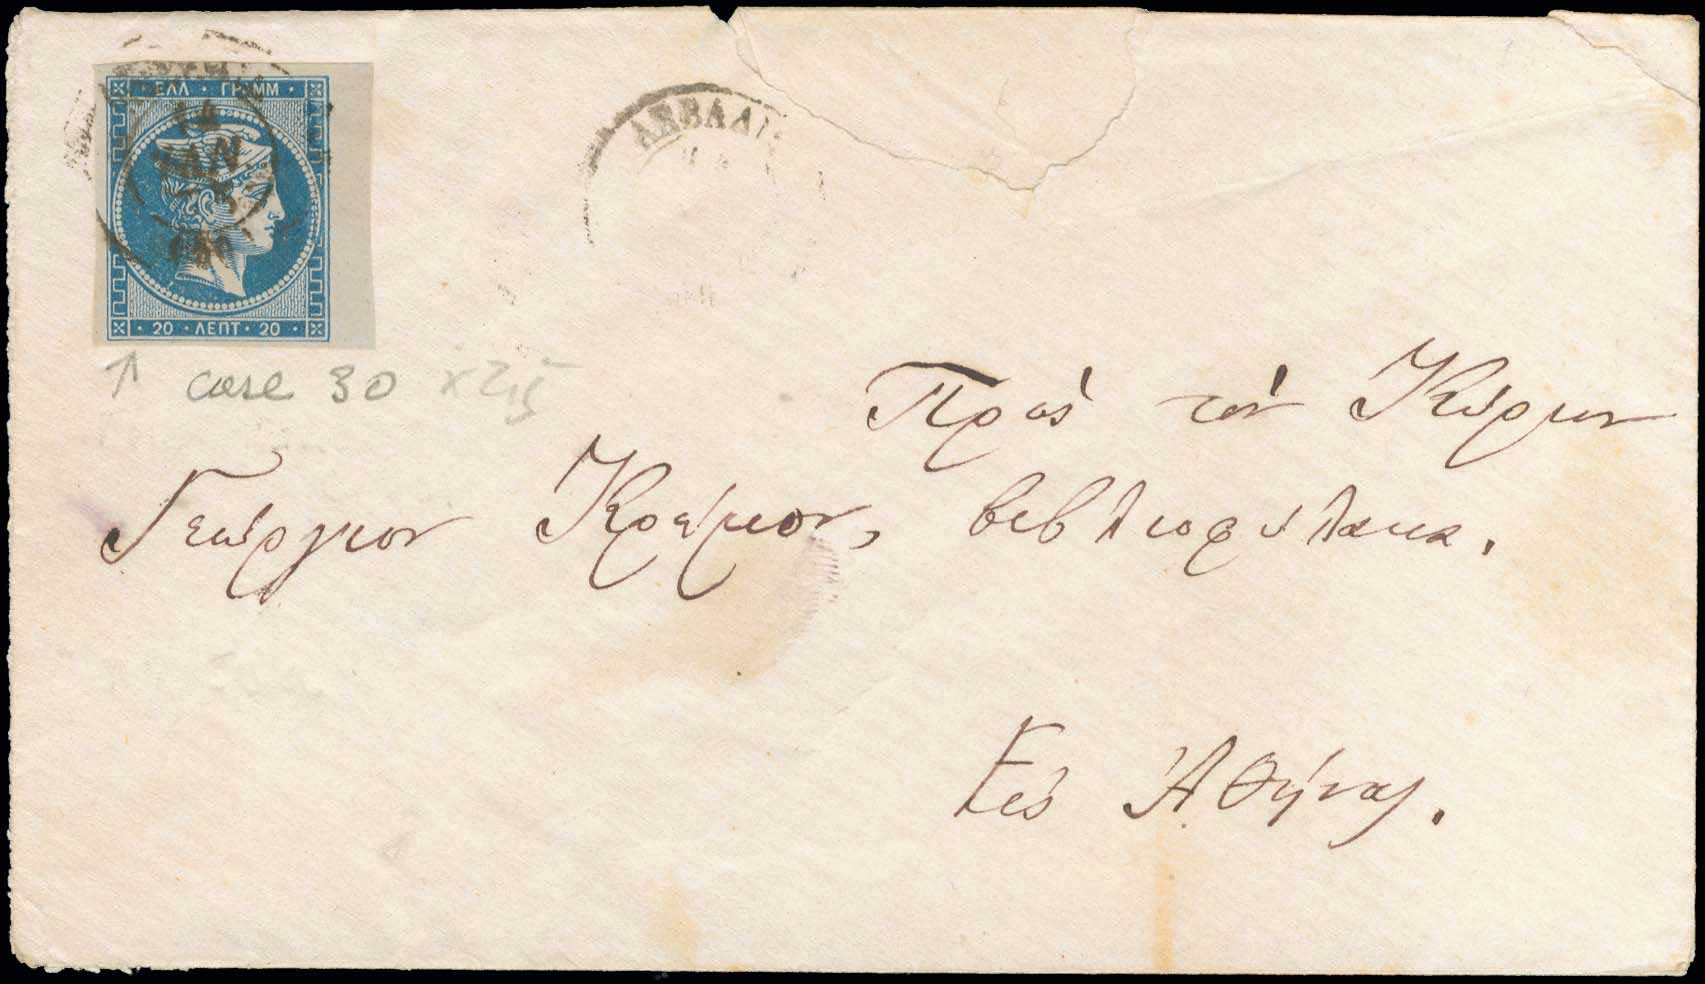 ΕΛΛ · ΓΡΑΜΜ ·
14
ΙΑΝ
· 20 · ΛΕΠΤ · 20 ·
ΛΕΒΑΔΙ
case 30
Πρὸς τὸν Κύριον
Γεώργιον Κρέμον, βιβλιοφύλακα.
Εἰς Ἀθήνας.